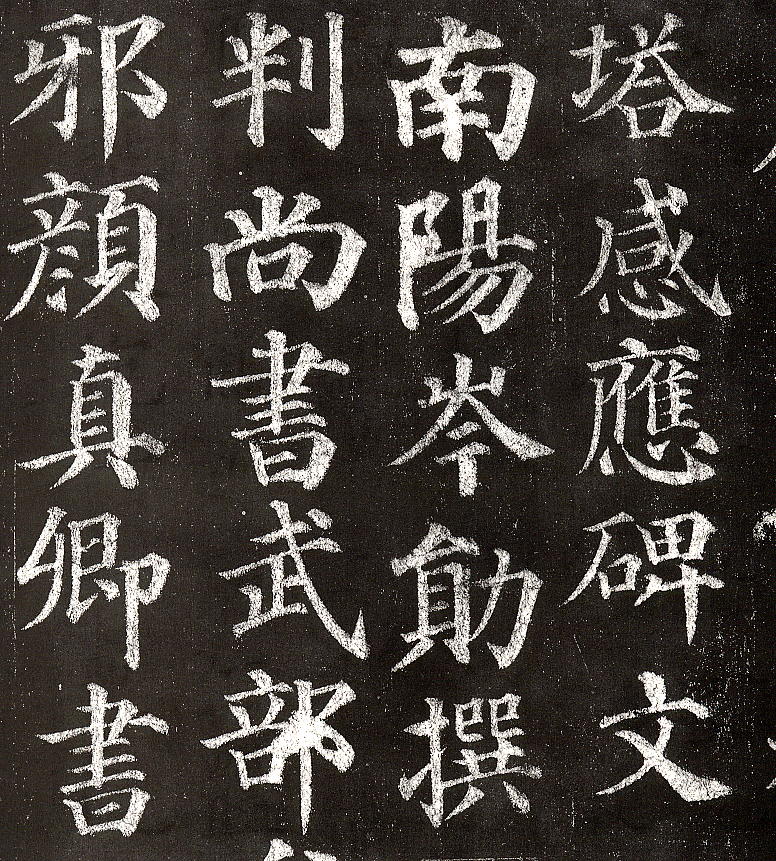 塔感應碑文
南陽岑勛撰
判尚書武部
邪顏真卿書